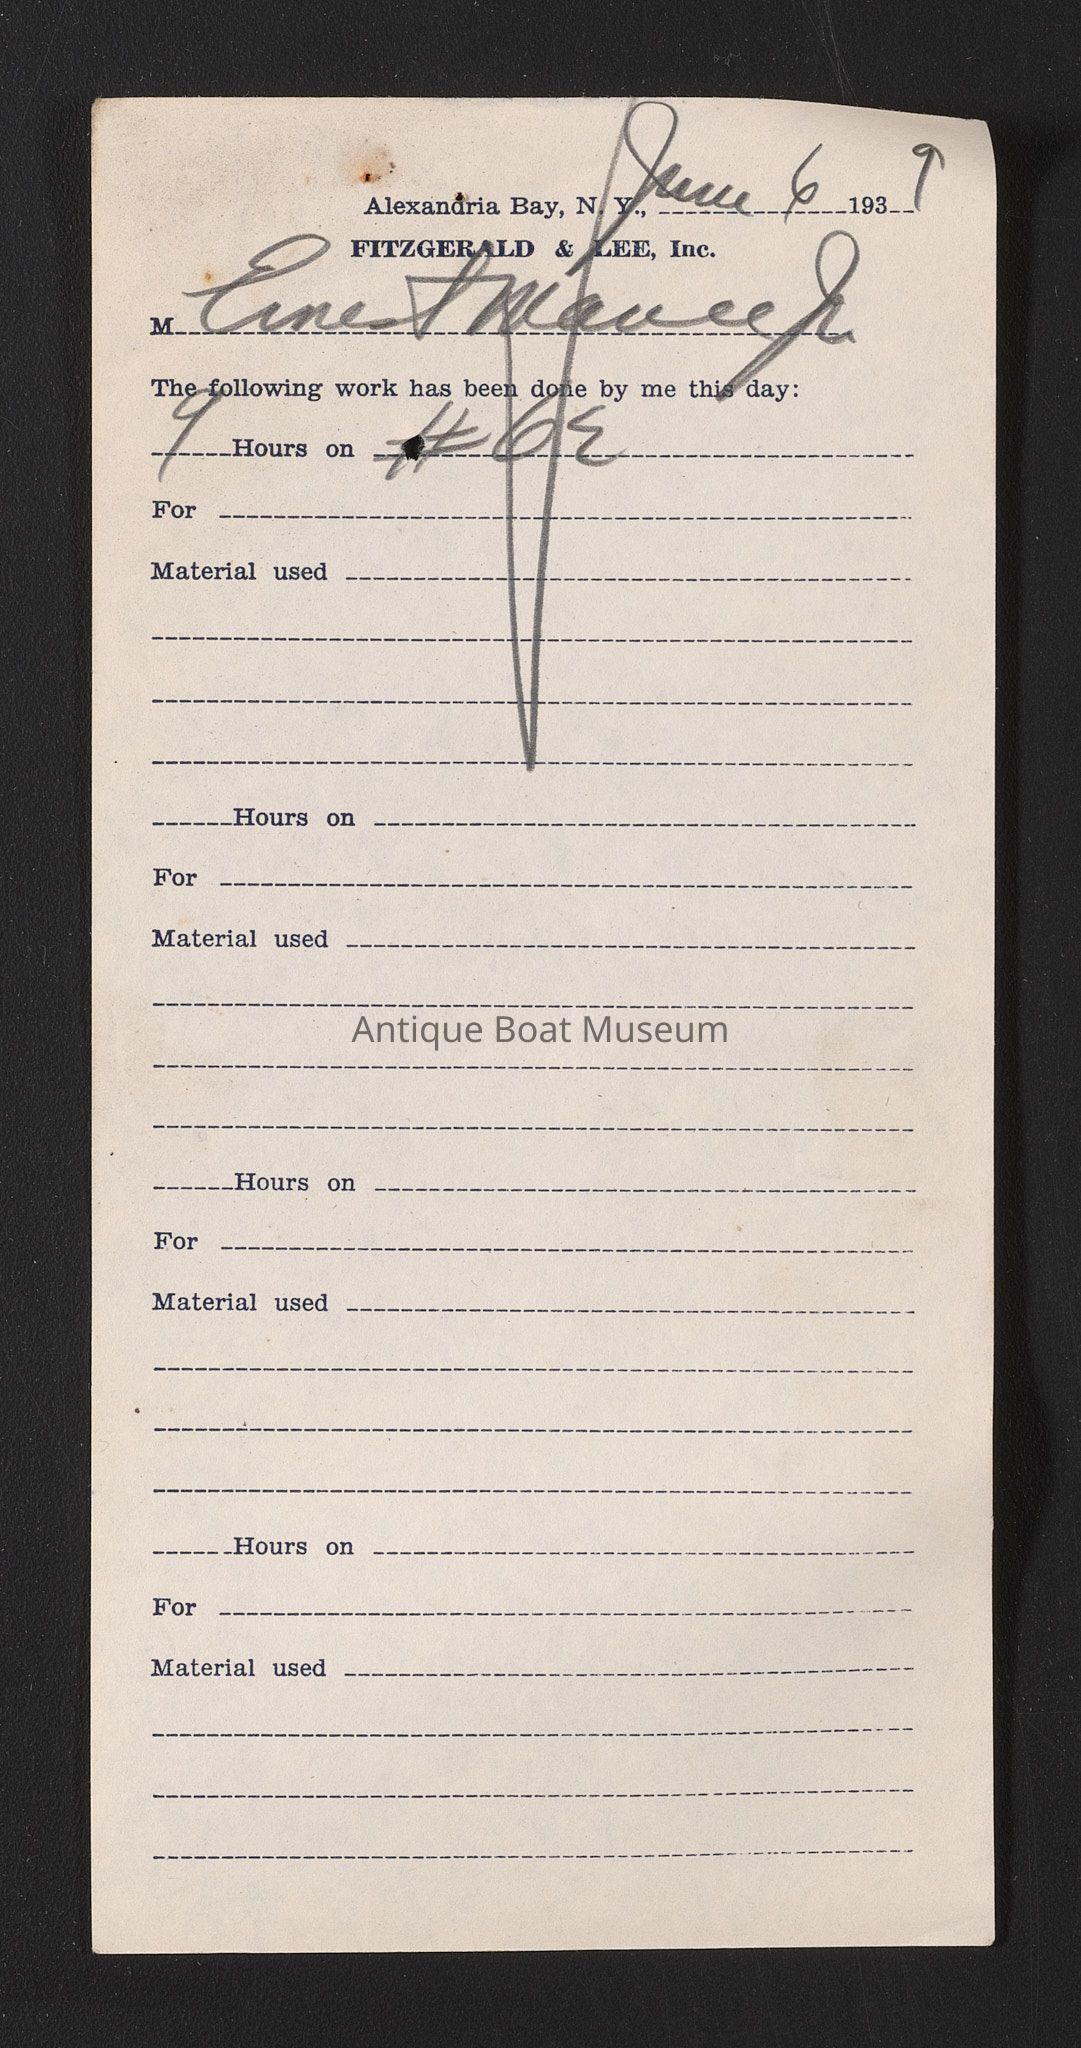 Alexandria Bay, N. Y., June 6 1939
FITZGERALD & LEE, Inc.
M Ernest Jr
The following work has been done by me this day:
9 Hours on # 62
For
Material used
Hours on
For
Material used
Antique Boat Museum
Hours on
For
Material used
Hours on
For
Material used